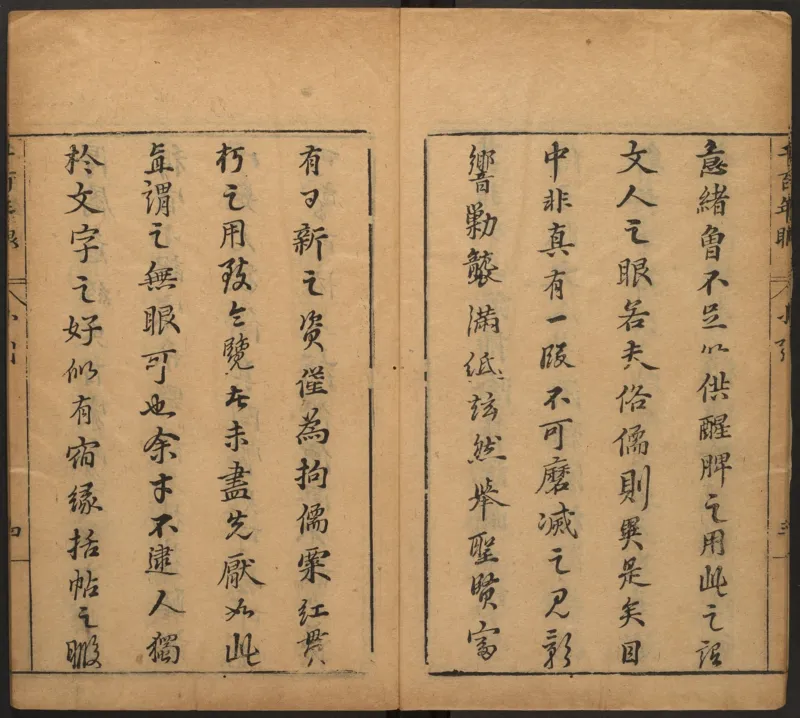 意緒曾不足以供醒脾之用此之謂
文人之眼若夫俗儒則異是矣目
中非真有一段不可磨滅之見影
響勦襲滿紙炫然舉聖賢富
有日新之資僅為拘儒粟紅貫
朽之用致令覽者未盡先厭如此
直謂之無眼可也余才不逮人獨
於文字之好似有宿緣括帖之暇
千百年眼
小引
四